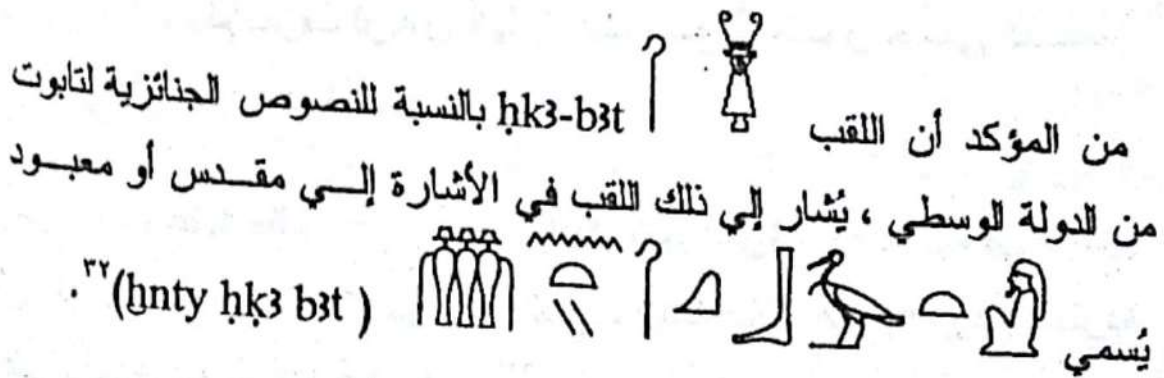 من المؤكد أن اللقب ḥk3-b3t بالنسبة للنصوص الجنائزية لتابوت
من الدولة الوسطي ، يُشار إلي ذلك اللقب في الأشارة إلــي مقــدس أو معبــود
يُسمي (ḫnty ḥḳ3 b3t )٣٢.